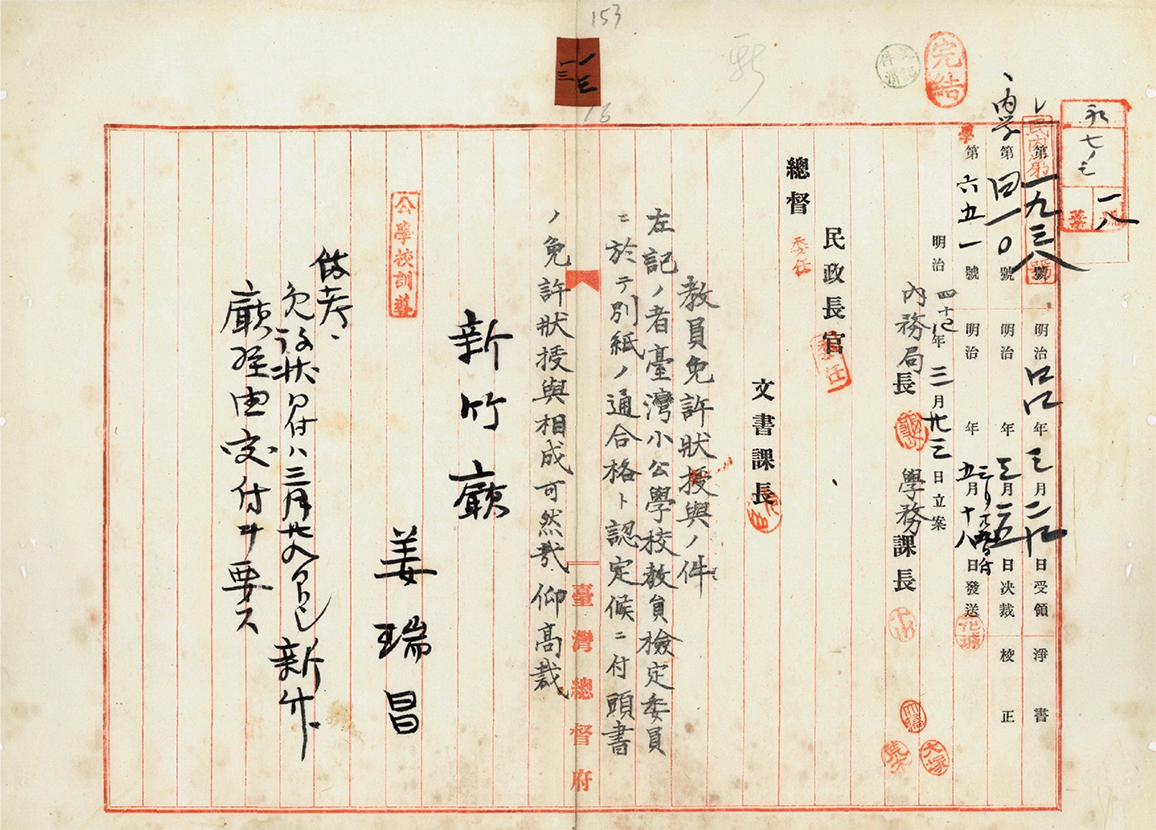 153
完結
一八
第一九三八號 明治 年三月二 日受領 淨書
內學第四一〇號 明治 年三月二五日決裁 校正
學第六五一號 明治 年五月十八日發送
明治四十四年三月廿三日立案
內務局長 學務課長
民政長官 委任
總督 委任
文書課長
教員免許狀授與ノ件
左記ノ者臺灣小公學校教員檢定委員
ニ於テ別紙ノ通合格ト認定候ニ付頭書
ノ免許狀授與相成可然哉仰高裁
臺灣總督府
新竹廳
公學校訓導
姜瑞昌
備考、
免許狀日付ハ三月廿八日 新竹
廳經由交付ヲ要ス